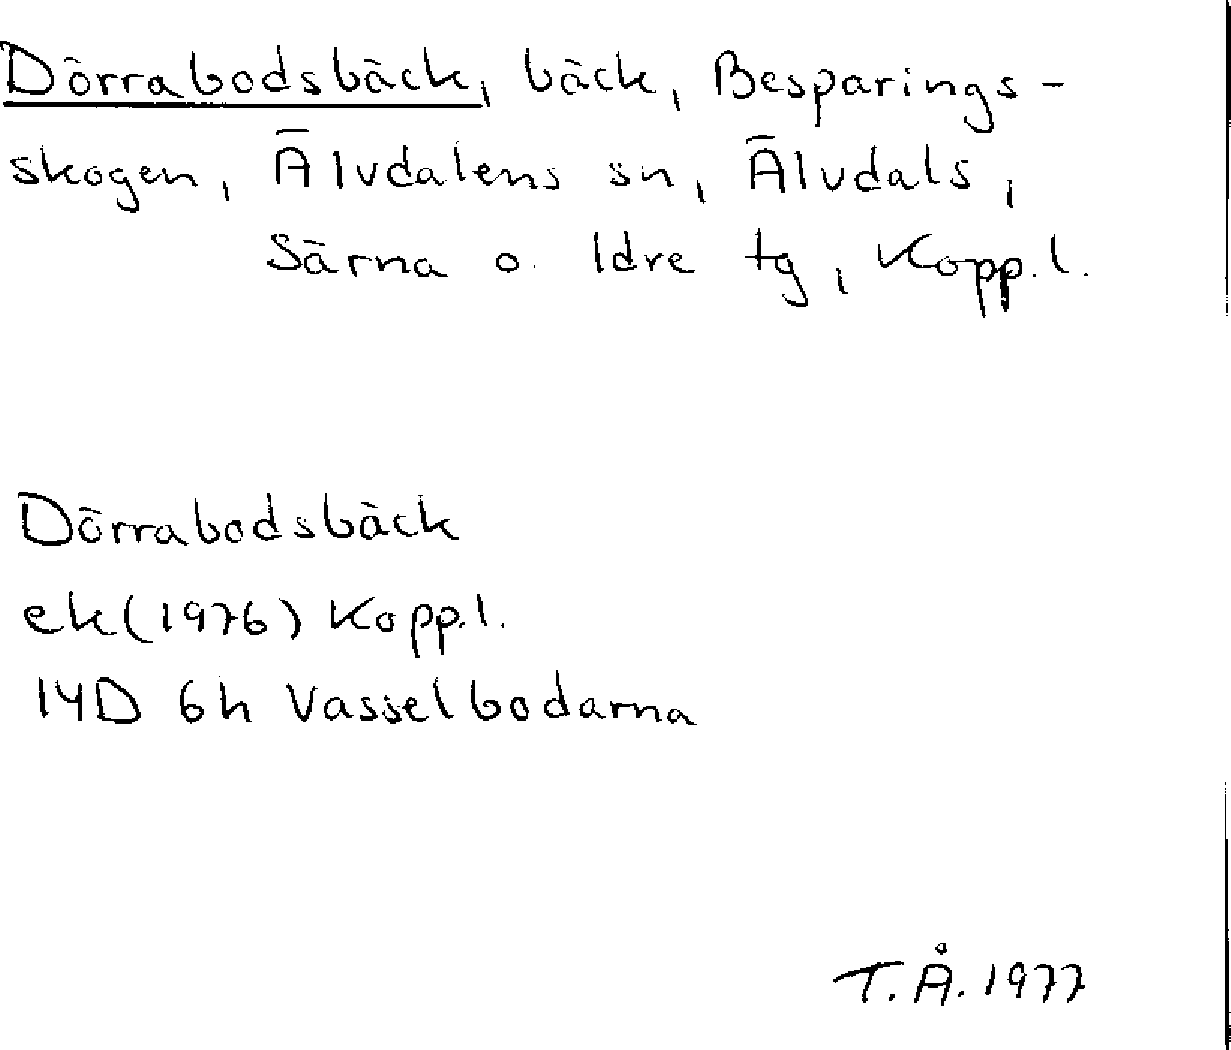 Dörrabodsbäck, bäck, Besparings-
skogen, Älvdalens sn, Älvdals,
Särna o. Idre tg, Kopp.l.
Dörrabodsbäck
ek(1976) Kopp.l.
14D 6h Vasselbodarna
T.Å. 1977